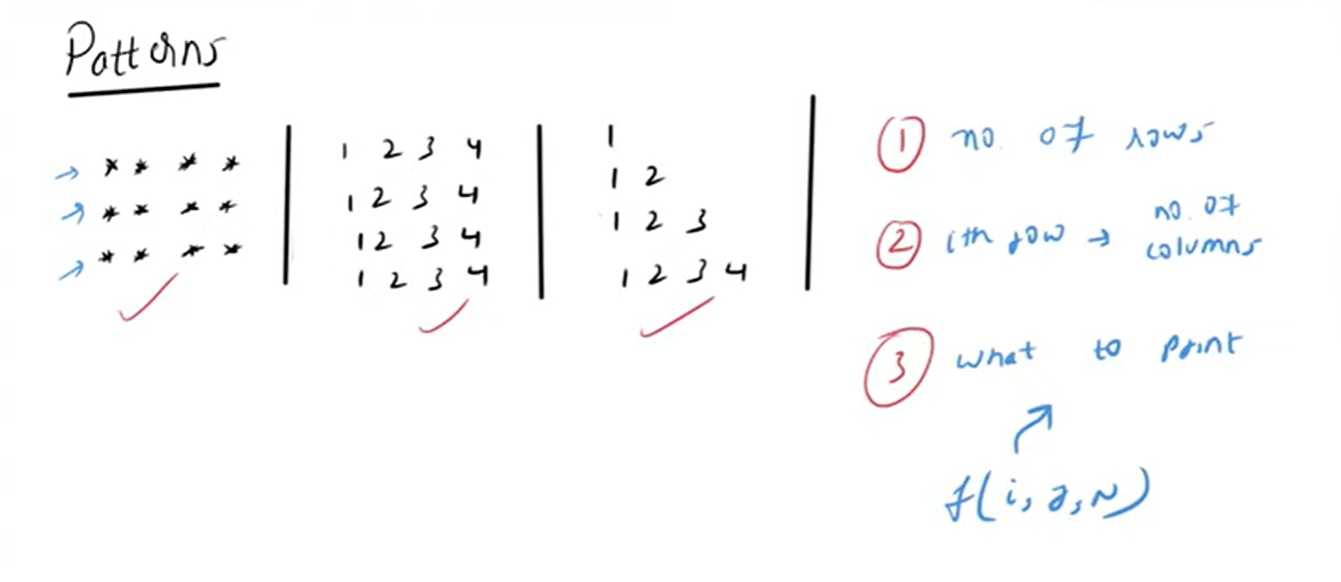 Patterns
* * * *
* * * *
* * * *
1 2 3 4
1 2 3 4
1 2 3 4
1 2 3 4
1
1 2
1 2 3
1 2 3 4
1 no. of rows
2 ith row → no. of columns
3 what to print
f(i, j, N)